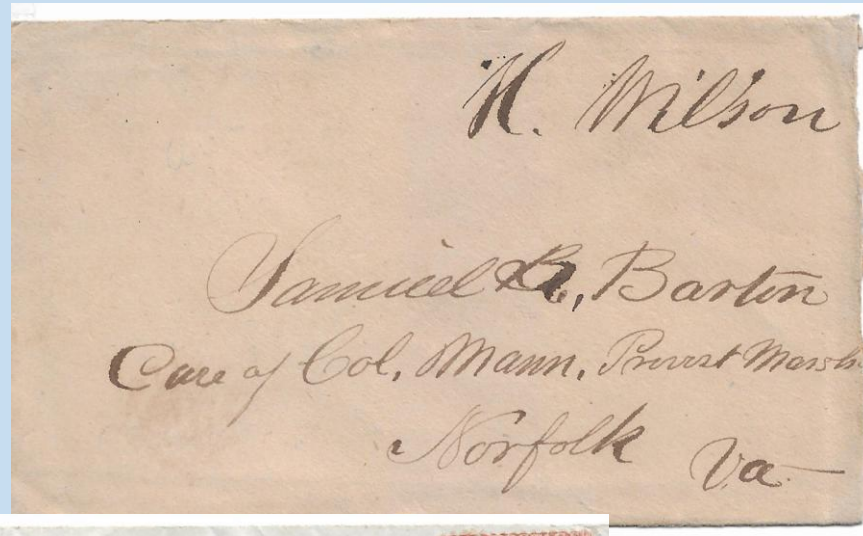 H. Wilson
Samuel R, Barton
Care of Col, Mann, Provost Marsh
Norfolk Va